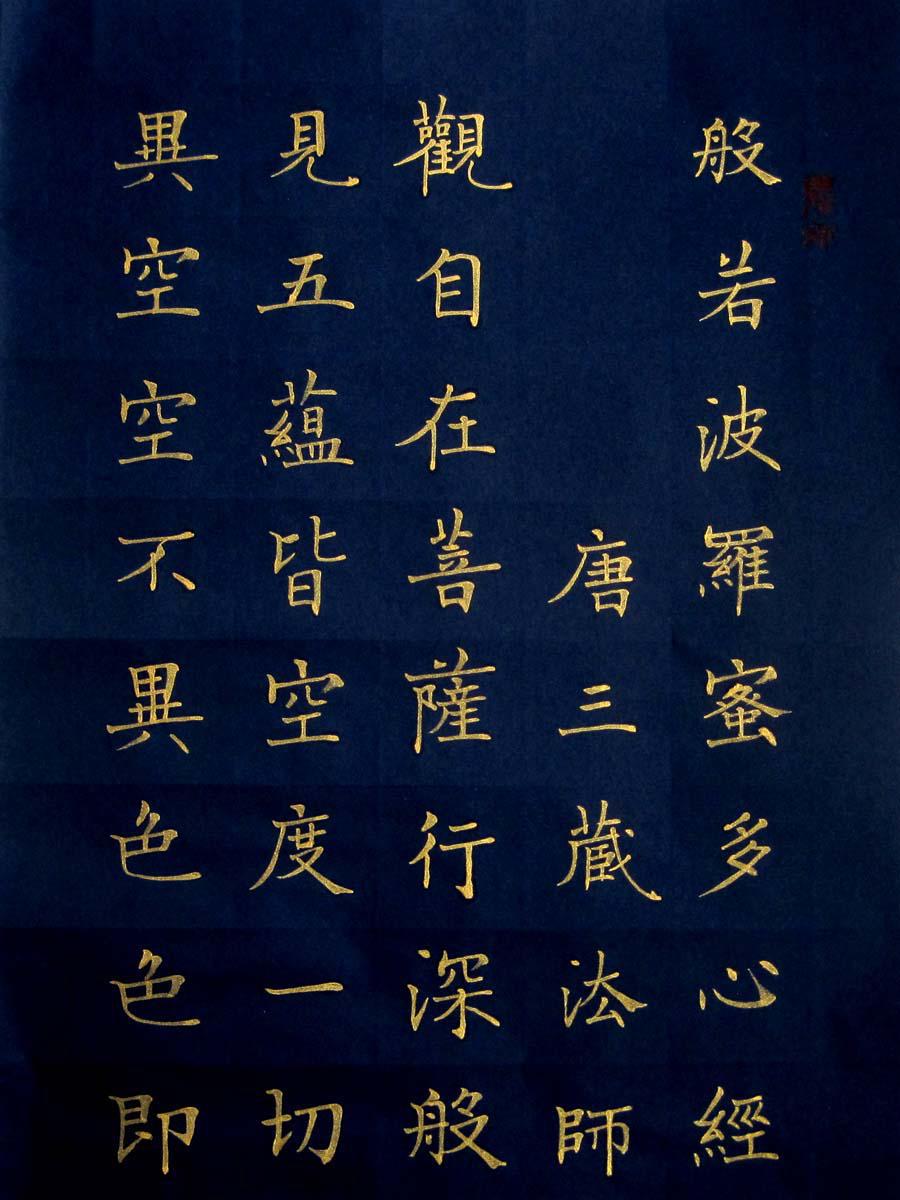 般若波羅蜜多心經
唐三藏法師
觀自在菩薩行深般
見五蘊皆空度一切
異空空不異色色即